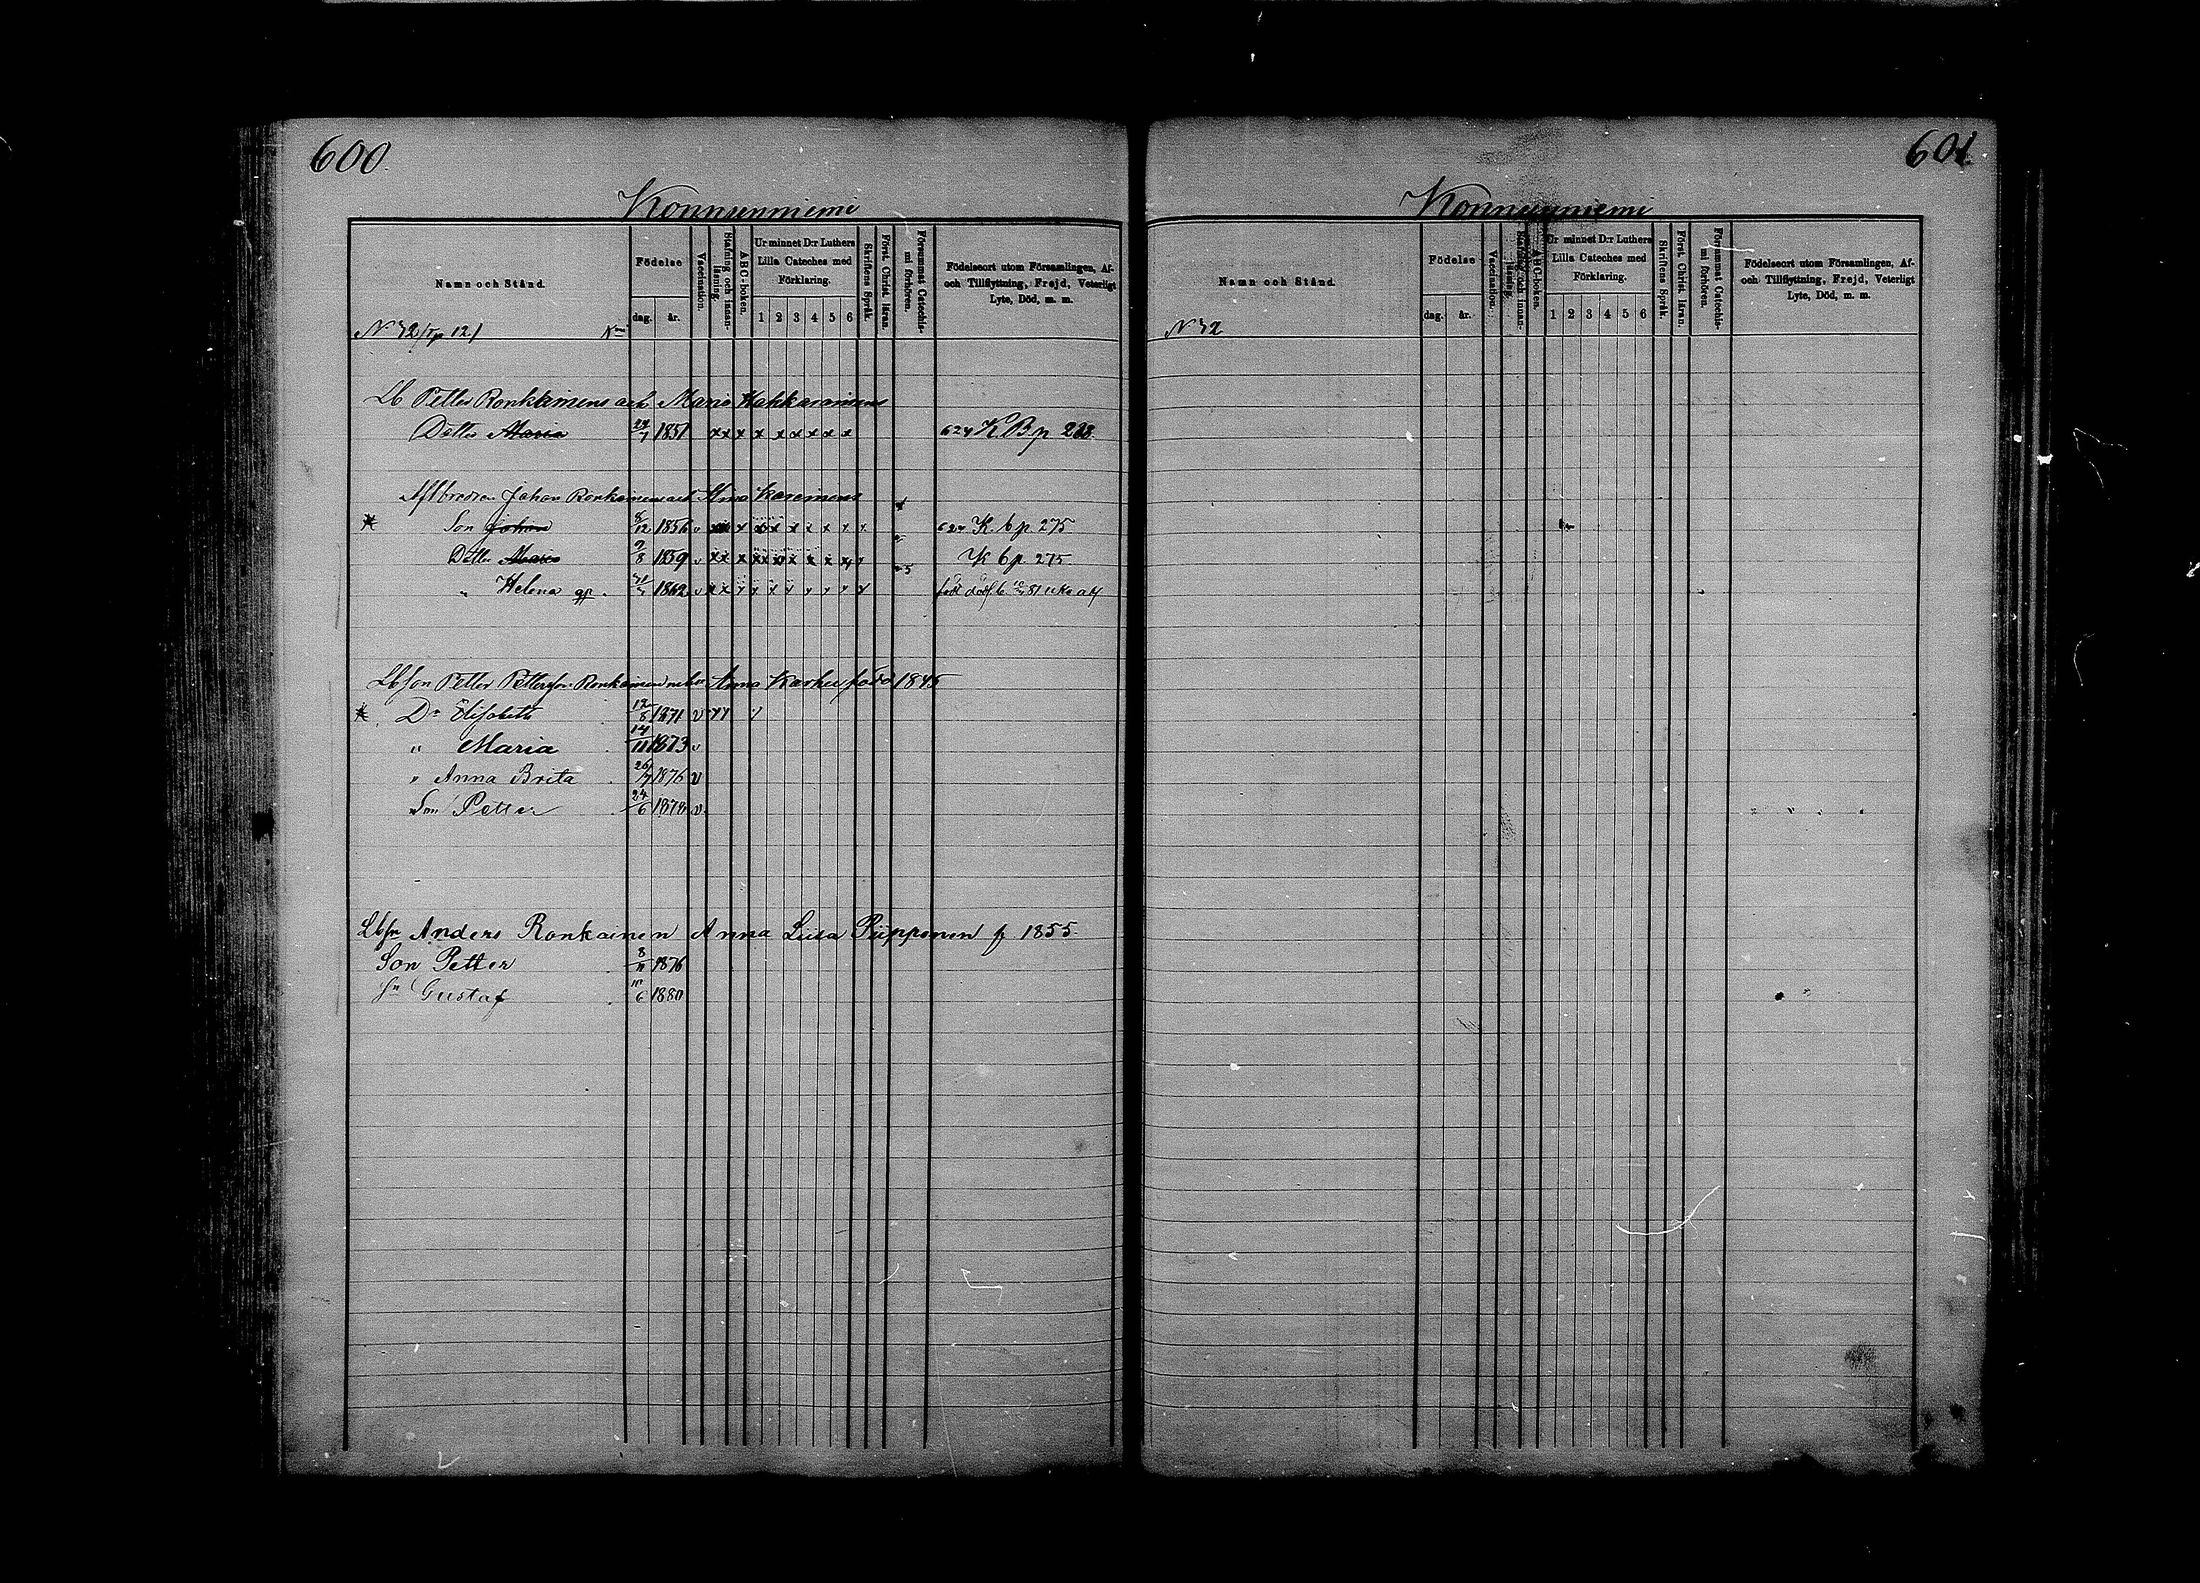 600.
Konnunniemi
Namn och Stånd.
Födelse
dag. år.
Vaccination.
Stafning och innan-läsning.
ABC-boken.
Ur minnet D:r Luthers Lilla Cateches med Förklaring.
1 2 3 4 5 6
Skriftens Språk.
Först. Christ. läran.
Försummat Catechis-mi förhören.
Födelseort utom Församlingen, Af- och Tillflyttning, Frejd, Veterligt Lyte, Död, m. m.
N 42 121
Lb Petter Ronkainens och Maria Hakkarainens
Dotter Maria 1851 x x x x x x x x x 624 K B p
Johan Ronkainens och
Son Johan 8/12 1856 v x x x x x x x 624 K b p 275
Dotter Maria 1859 v x x x x x x x x K b p 275
" Helena 1862 v x x
Lbson Petter Ronkainen Anna Karhu född 1845
Dr Elisabeth 12/8 1871 v
" Maria 14/11 1873 v
" Anna Brita 26/7 1876 v
Son Petter 24/6 1878 v
Lbsn Anders Ronkainen Anna Liisa Piipponen f 1855
Son Petter 8/11 1876
Sn Gustaf 6 1880
601.
Konnunniemi
Namn och Stånd.
Födelse
dag. år.
Vaccination.
Stafning och innan-läsning.
ABC-boken.
Ur minnet D:r Luthers Lilla Cateches med Förklaring.
1 2 3 4 5 6
Skriftens Språk.
Först. Christ. läran.
Försummat Catechis-mi förhören.
Födelseort utom Församlingen, Af- och Tillflyttning, Frejd, Veterligt Lyte, Död, m. m.
N 42